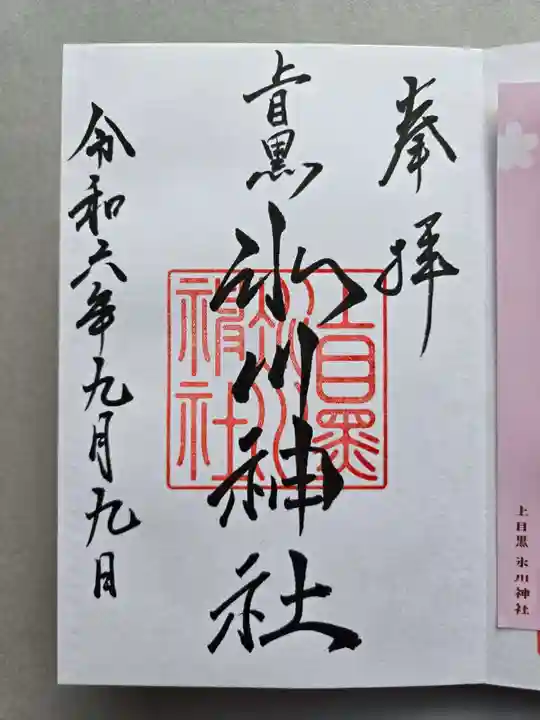 奉拝
上目黒
氷川神社
令和六年九月九日
上目黒
氷川
神社
上目黒 氷川神社